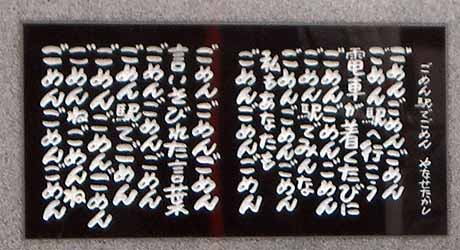 ごめん駅でごめん やなせたかし
ごめんごめんごめん
ごめん駅へ行こう
電車が着くたびに
ごめんごめんごめん
ごめん駅でみんな
ごめんごめんごめん
私もあなたも
ごめんごめんごめん
ごめんごめんごめん
言いそびれた言葉
ごめんごめんごめん
ごめん駅でごめん
ごめんごめんごめん
ごめんねごめんね
ごめんごめんごめん